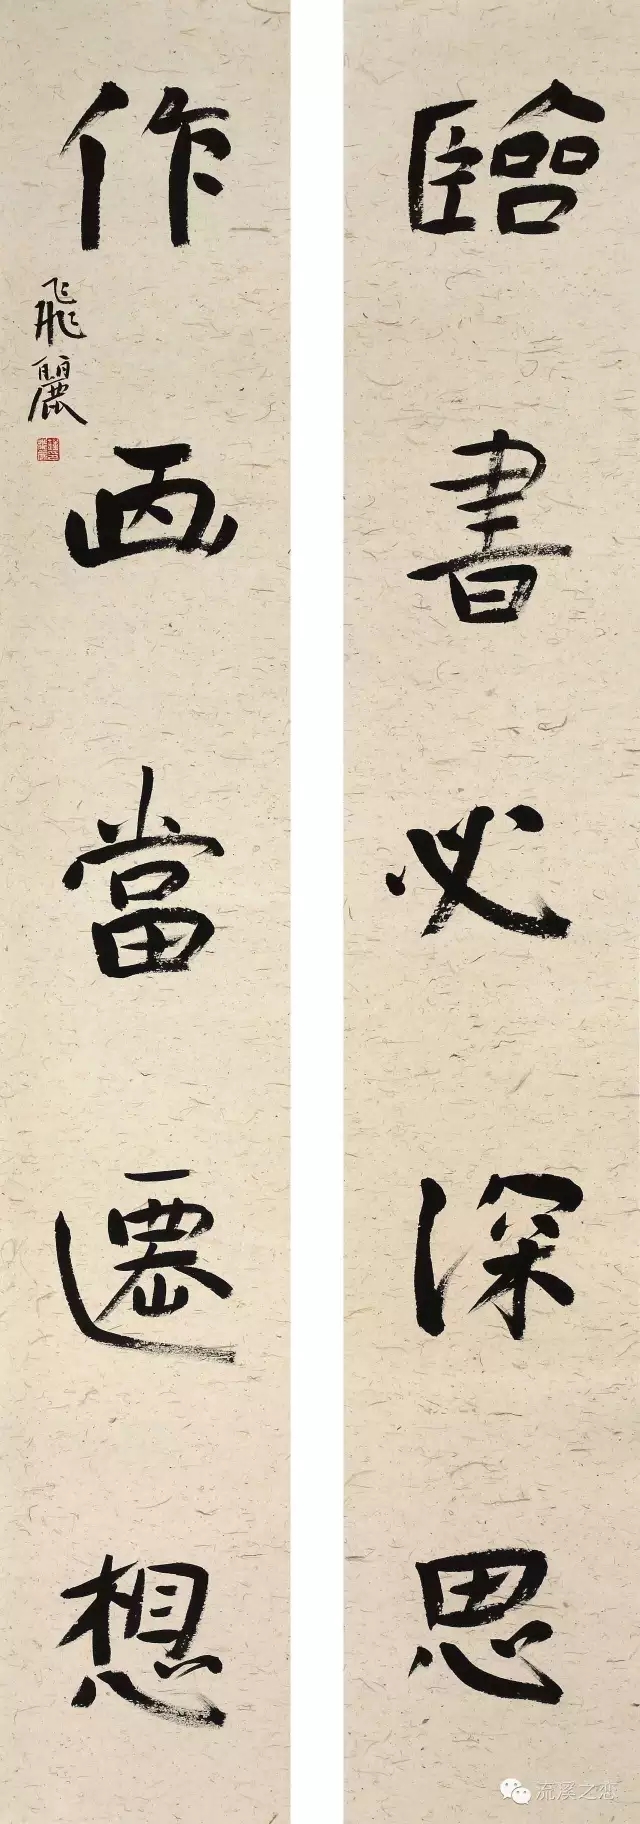 臨書必深思
作画當遷想
飛麗
流溪之恋